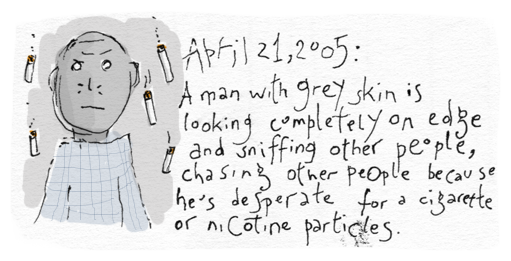 April 21, 2005:
A man with grey skin is
looking completely on edge
and sniffing other people,
chasing other people because
he's desperate for a cigarette
or nicotine particles.